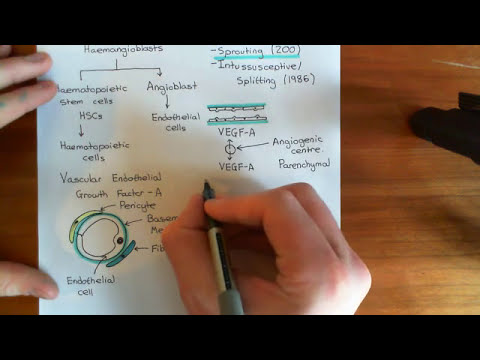 Haemangioblasts
Haematopoietic
Stem cells
HSCs
Haematopoietic
cells
Angioblast
Endothelial
cells
Vascular Endothelial
Growth Factor-A
Pericyte
Endothelial
cell
-Sprouting (200)
-Intussusceptive/
Splitting (1986)
VEGF-A
Angiogenic
centre.
VEGF-A
Parenchymal